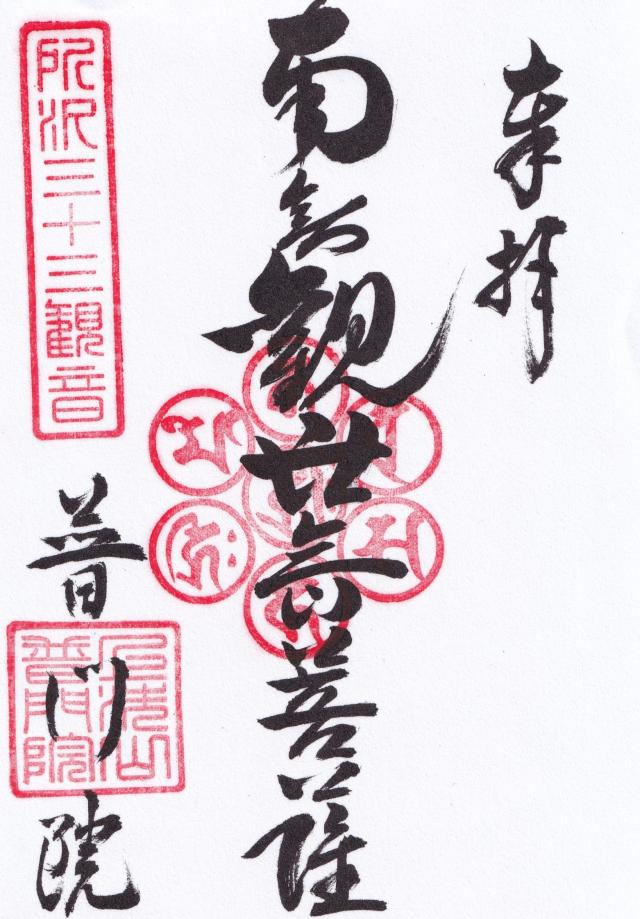 奉拝
南無觀世音菩薩
三十三観音
普門院
普門院